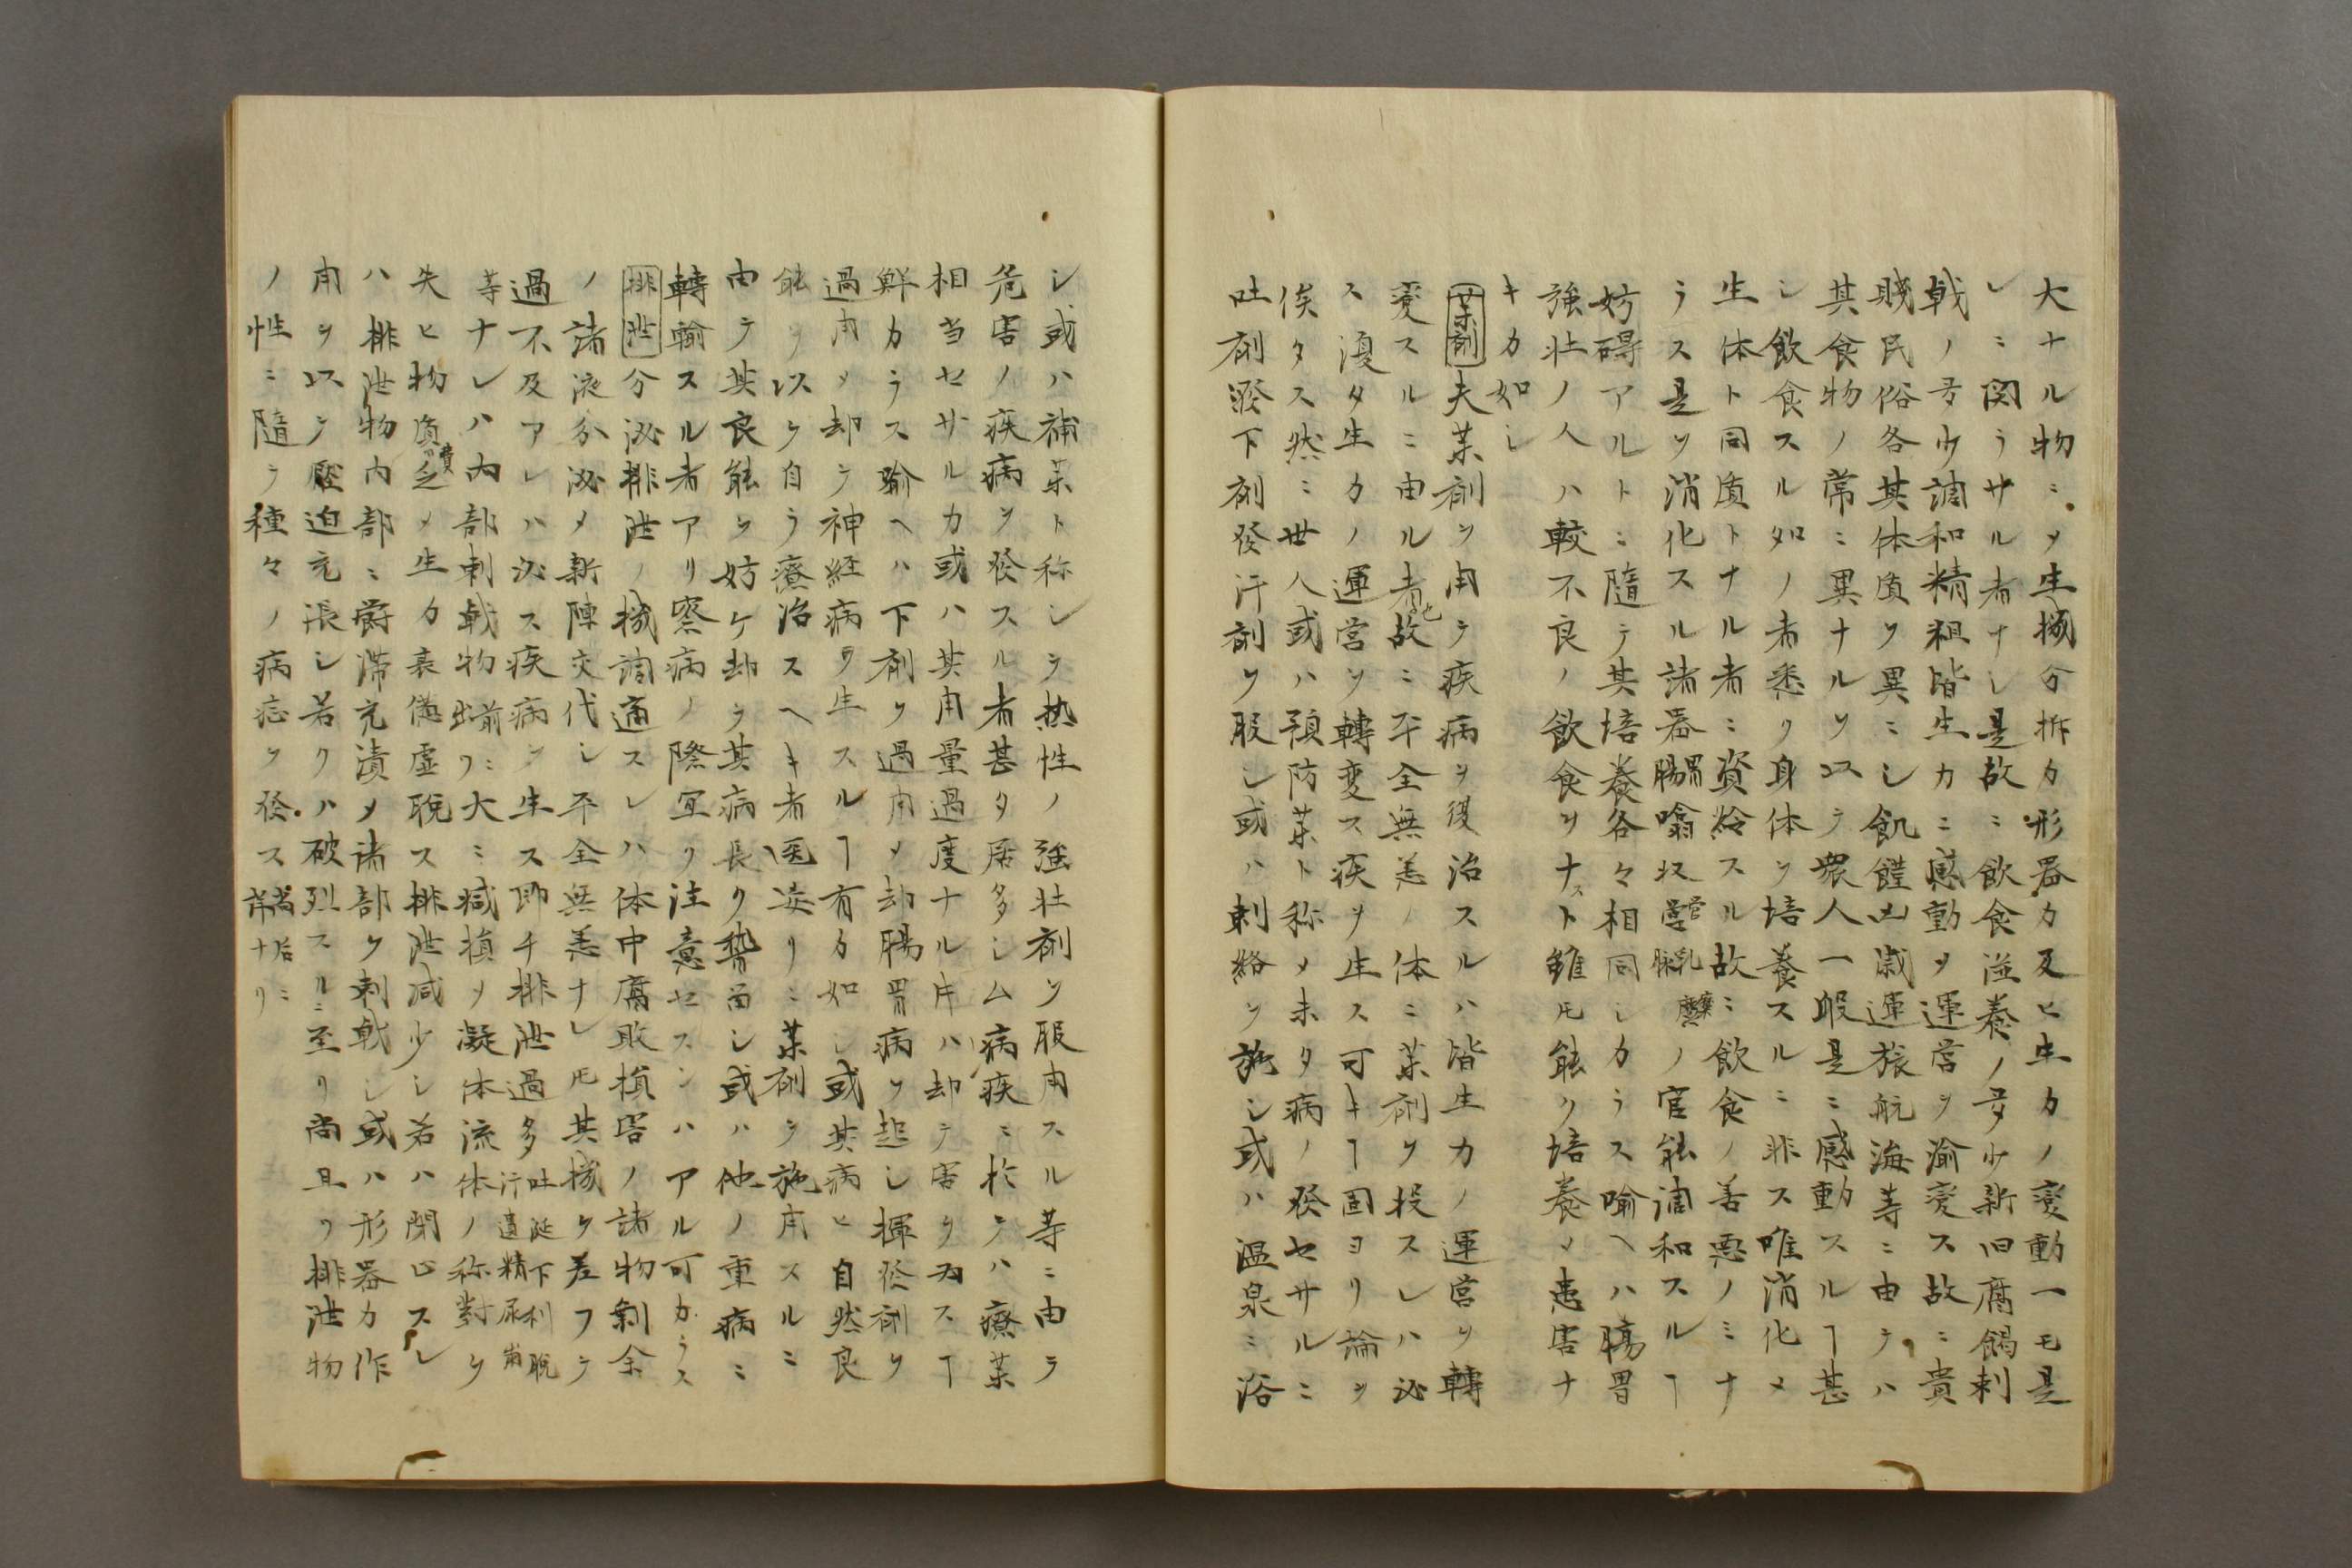 大ナル物ニ乄生機分拆力形器力及ヒ生力ノ変動一モ是
レニ関ラサル者ナシ是故ニ飲食滋養ノ多少新旧腐餲刺
戟ノ多少調和精粗皆生力ニ感動ヲ運営ヲ渝変ス故ニ貴
賤民俗各其体质ヲ異ニシ飢饉凶歳運旅航海等ニ由テハ
其食物ノ常ニ異ナルヲ以テ衆人一般是ニ感動スルヿ甚
シ飲食スル如ノ者悉ク身体ヲ培養スルニ非ス唯消化乄
生体ト同质トナル者ニ資給スル故ニ飲食ノ善悪ノミナ
ラス是ヲ消化スル諸器胃腸噏収管乳脉ノ官能調和スルヿ
妨碍アルトニ隨テ其培養各々相同シカラス喻ヘハ腸胃
強壮ノ人ハ較不良ノ飲食ヲナスト雖𪜈能ク培養乄患害ナ
キカ如シ
薬剤夫薬剤ヲ用テ疾病ヲ復治スルハ皆生力ノ運営ヲ轉
変スルニ由ル者也故ニ平全無恙ノ体ニ薬剤ヲ投スレハ必
ス復タ生力ノ運営ヲ轉変ス疾ヲ生ス可キヿ固ヨリ論ヲ
俟タス然ニ世人或ハ預防薬ト称乄未タ病ノ発セサルニ
吐剤瀉下剤発汗剤ヲ服シ或ハ刺絡ヲ施シ或ハ温泉ニ浴
シ或ハ補薬ト称シテ热性ノ強壮剤ヲ服用スル等ニ由テ
危害ノ疾病ヲ発スル者甚タ居多シ厶病疾ニ於テハ療薬
相当セサルカ或ハ其用量過度ナル片ハ却テ害ヲ為スヿ
鮮カラス喻ヘハ下剤ヲ過用乄却腸胃病ヲ起シ揮発剤ヲ
過用乄却テ神経病ヲ生スルヿ有カ如シ或其病ヒ自然良
能ヲ以ク自ラ療治スヘキ者医妄リニ薬剤ヲ施用スルニ
由テ其良能ヲ妨ケ却テ其病長ク稽留シ或ハ他ノ重病ニ
轉輸スル者アリ察病ノ際宜ク注意セスンハアル可カラス
排泄分泌排泄ノ機調適スレハ体中腐敗損害ノ諸物剰余
ノ諸液分泌乄新陳交代シ平全無恙ナレ𪜈其機ヲ差フテ
過不及アレハ必ス疾病ヲ生ス即チ排泄過多吐涎下利脱汗遺精尿崩
等ナレハ内部刺戟物前ニ出ヲ大ニ減損ヲ凝体流体ノ称對ヲ
失ヒ物质費乏乄生力衰憊虚脱ス排泄減少シ若ハ閉止スレ
ハ排泄物内部ニ欝滞充漬乄諸部ヲ刺戟シ或ハ形器力作
用ヲ以テ壓迫充張シ若クハ破烈スルニ至リ尚且ツ排泄物
ノ性ニ隨テ種々ノ病症ヲ発ス尚后ニ詳ナリ